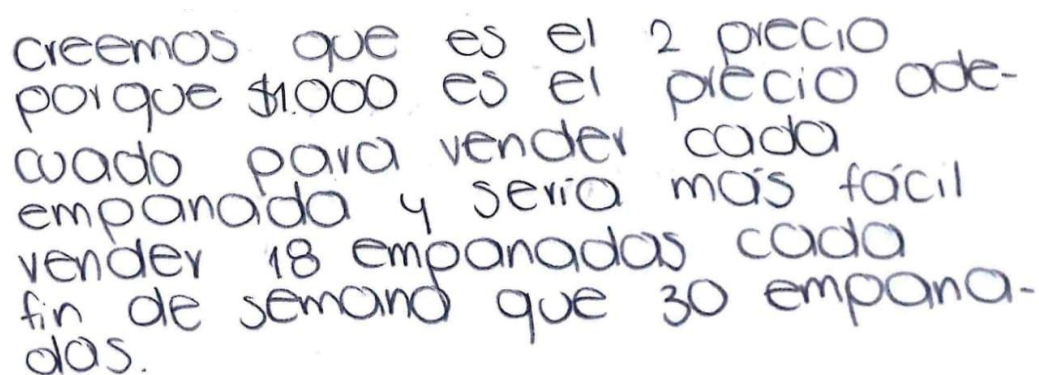 creemos que es el 2 precio
porque $1.000 es el precio ade-
cuado para vender cada
empanada y seria más fácil
vender 18 empanadas cada
fin de semana que 30 empana-
das.